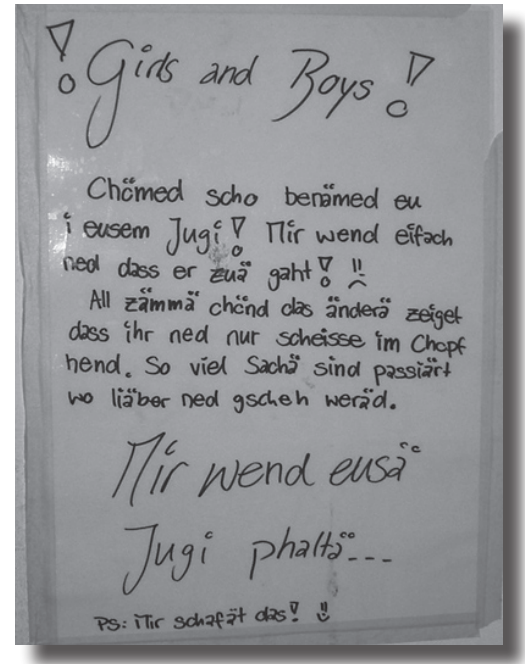 ! Girls and Boys!
Chömed scho benämed eu
i eusem Jugi! Mir wend eifach
ned dass er zuä gaht! !!
All zämmä chönd das änderä zeiget
dass ihr ned nur scheisse im Chopf
hend. So viel Sachä sind passiärt
wo liäber ned gscheh weräd.
Mir wend eusä
Jugi phaltä...
Ps: Mir schafät das! ü